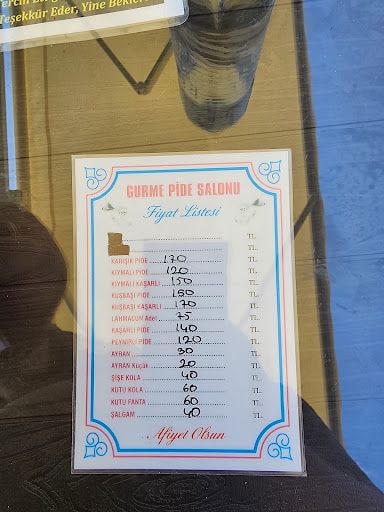 Teşekkür Eder, Yine Bekler
GURME PİDE SALONU
Fiyat Listesi
TL
TL
KARIŞIK PİDE 170 TL
KIYMALI PİDE 120 TL
KIYMALI KAŞARLI 150 TL
KUŞBAŞI PİDE 150 TL
KUŞBAŞI KAŞARLI 170 TL
LAHMACUN Adet 75 TL
KAŞARLI PİDE 140 TL
PEYNİRLİ PİDE 120 TL
AYRAN 30 TL
AYRAN Küçük 20 TL
ŞİŞE KOLA 40 TL
KUTU KOLA 60 TL
KUTU FANTA 60 TL
ŞALGAM 40 TL
Afiyet Olsun